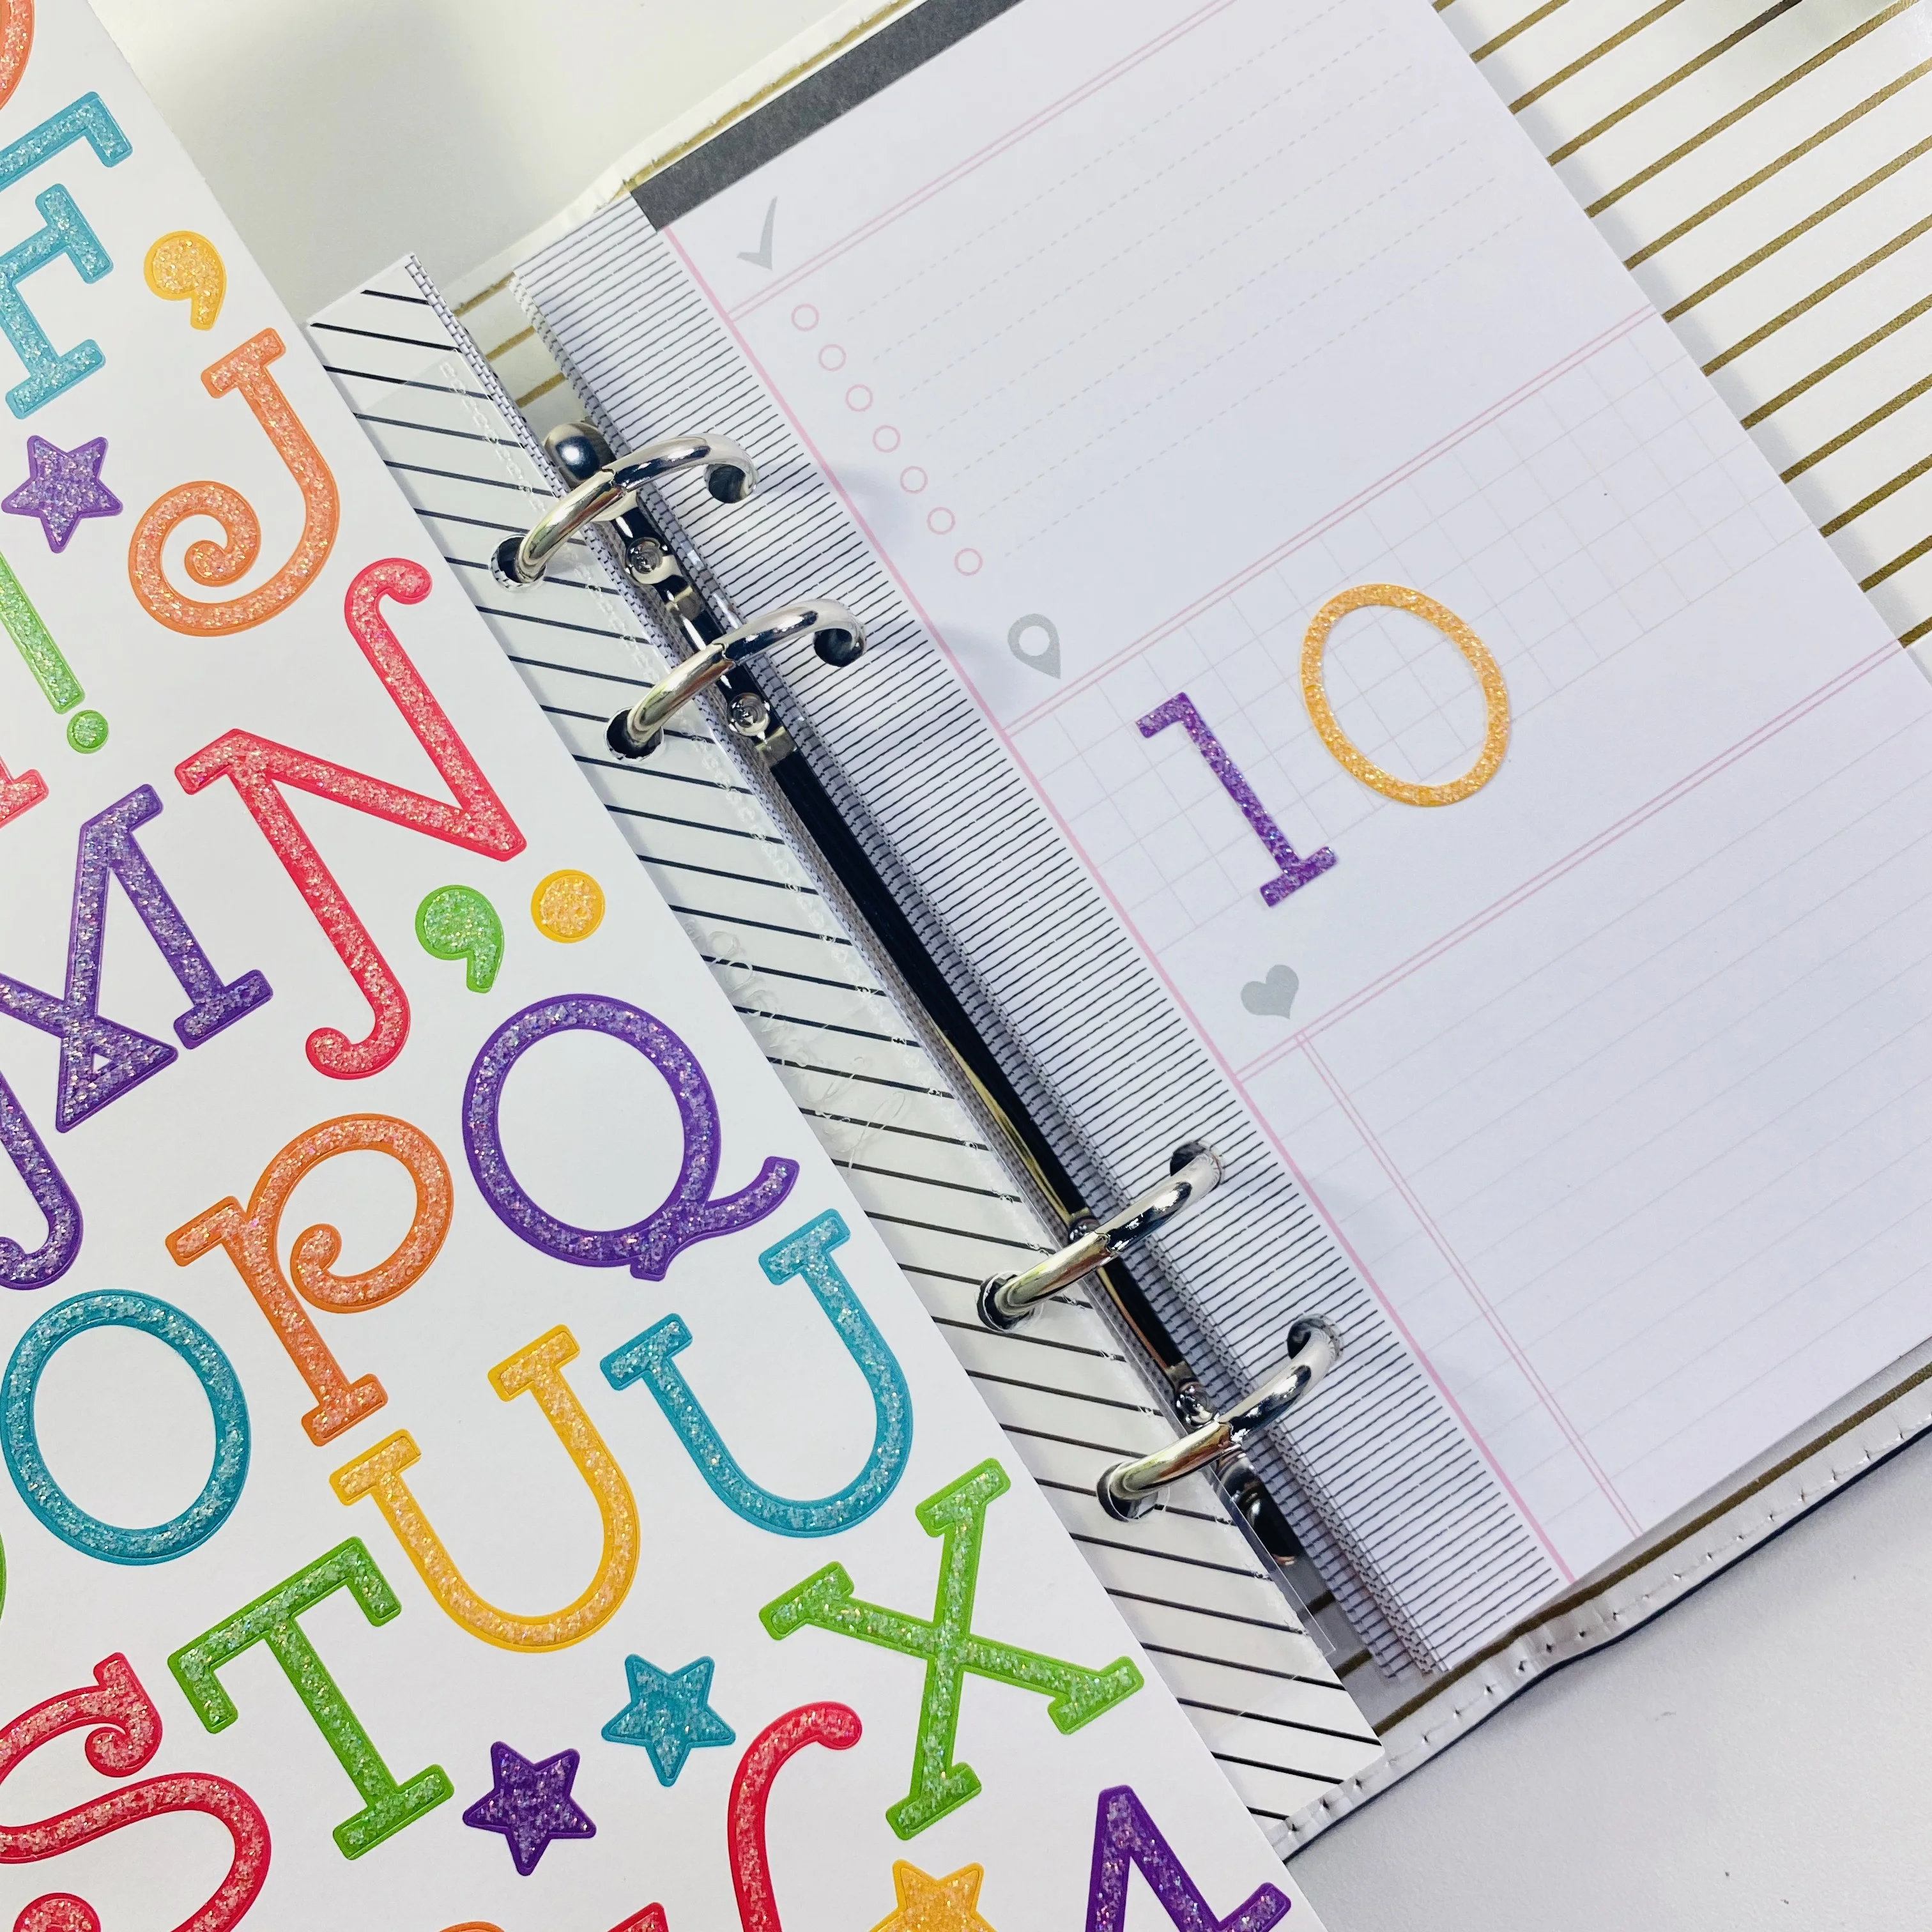 E '
J
! N
M , .
P Q
O U U
S T X
10